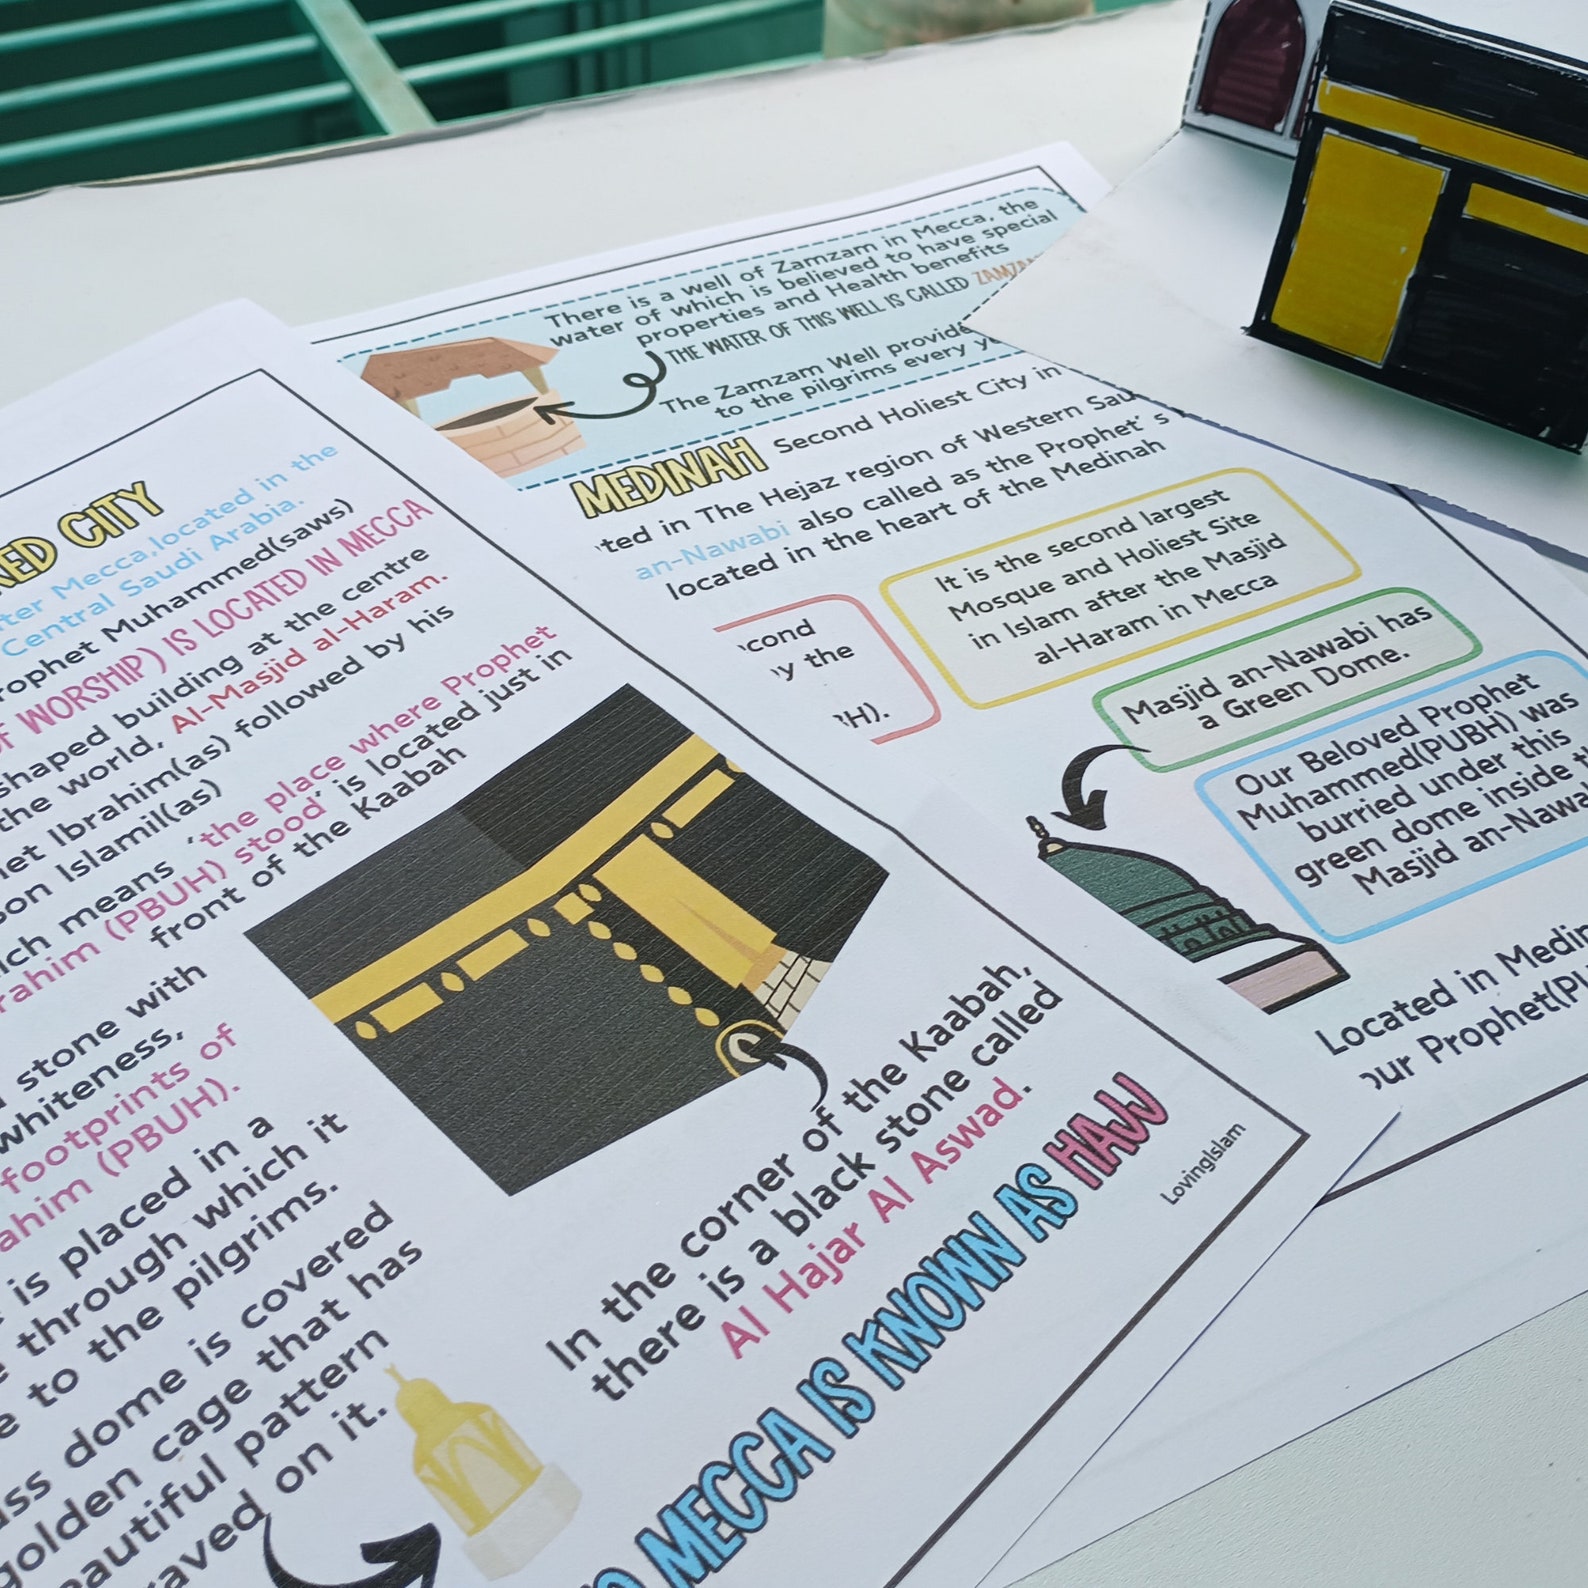 CITY
Mecca, located in the
Central Saudi Arabia.
Prophet Muhammed(saws)
OF WORSHIP) IS LOCATED IN MECCA
shaped building at the centre
the world, Al-Masjid al-Haram.
Ibrahim(as) followed by his
son Islamil(as)
means 'the place where Prophet
(PBUH) stood' is located just in
front of the Kaabah
stone with
whiteness,
footprints of
(PBUH).
is placed in a
through which it
to the pilgrims.
dome is covered
golden cage that has
pattern
on it.
In the corner of the Kaabah,
there is a black stone called
Al Hajar Al Aswad.
MECCA IS KNOWN AS HAJJ
LovingIslam
There is a well of Zamzam in Mecca, the
water of which is believed to have special
properties and Health benefits
THE WATER OF THIS WELL IS CALLED
The Zamzam Well
to the pilgrims every
MEDINAH Second Holiest City in
in The Hejaz region of Western
an-Nawabi also called as the Prophet's
located in the heart of the Medinah
the
It is the second largest
Mosque and Holiest Site
in Islam after the Masjid
al-Haram in Mecca
Masjid an-Nawabi has
a Green Dome.
Our Beloved Prophet
Muhammed(PUBH) was
burried under this
green dome inside
Masjid
Located in
our